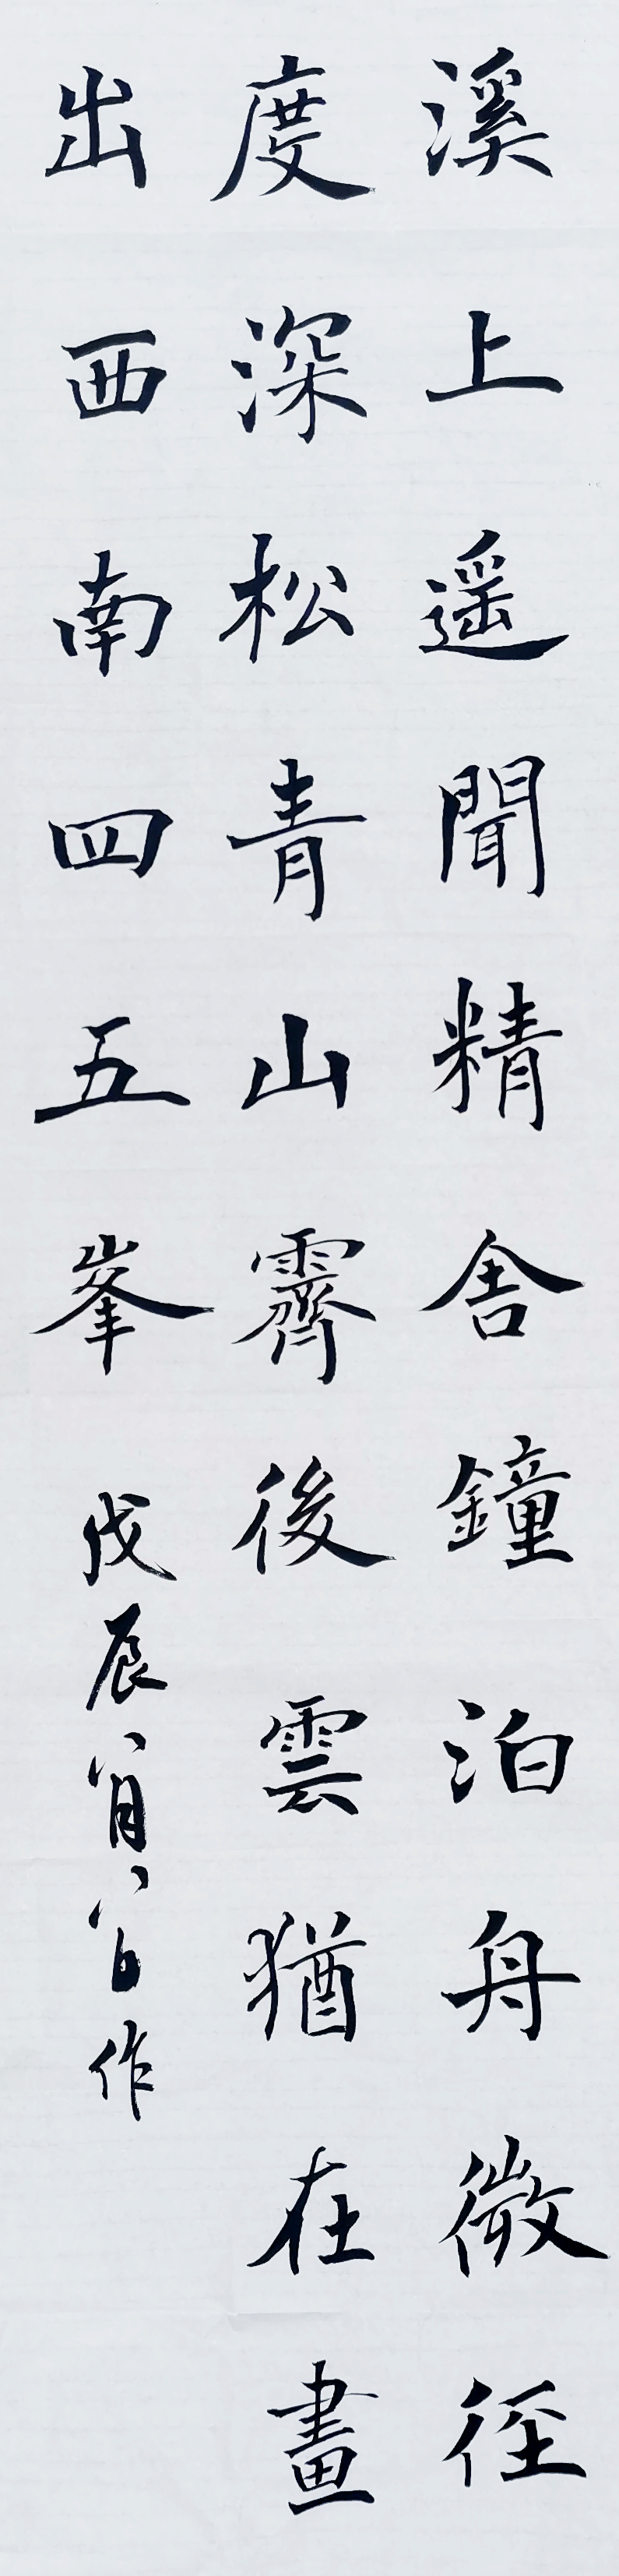 溪上遥聞精舍鐘泊舟微徑
度深松青山霽後雲猶在畫
出西南四五峯 戊辰八月八日作